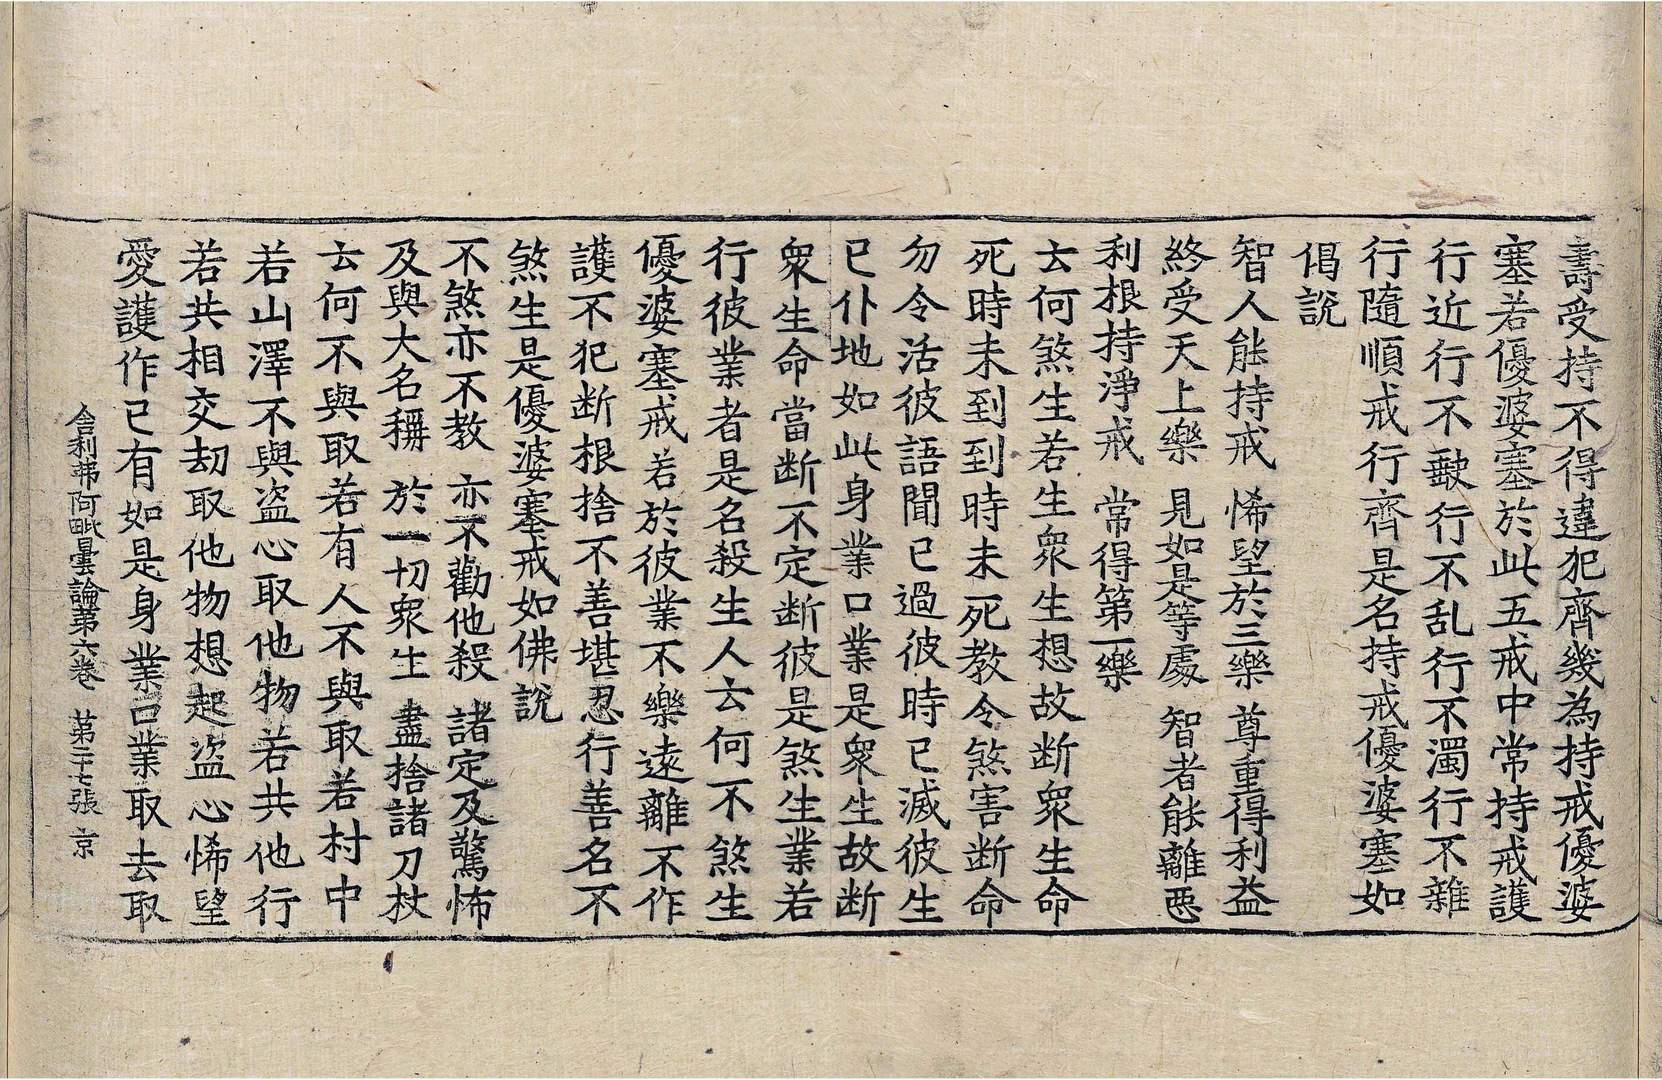 壽受持不得違犯齊幾為持戒優婆
塞若優婆塞於此五戒中常持戒護
行近行不歇行不乱行不濁行不雜
行隨順戒行齊是名持戒優婆塞如
偈說
智人能持戒 悕望於三樂 尊重得利益
終受天上樂 見如是等處 智者能離惡
利根持淨戒 常得第一樂
云何煞生若生衆生想故断衆生命
死時未到到時未死教令煞害断命
勿令活彼語聞已過彼時已滅彼生
已仆地如此身業口業是衆生故断
衆生命當断不定断彼是煞生業若
行彼業者是名殺生人云何不煞生
優婆塞戒若於彼業不樂遠離不作
護不犯断根捨不善堪忍行善名不
煞生是優婆塞戒如佛說
不煞亦不教 亦不勸他殺 諸定及驚怖
及與大名稱 於一切衆生 盡捨諸刀杖
云何不與取若有人不與取若村中
若山澤不與盗心取他物若共他行
若共相交刧取他物想起盗心悕望
愛護作已有如是身業口業取去取
舍利弗阿毗曇論第六卷 第二十七張 京